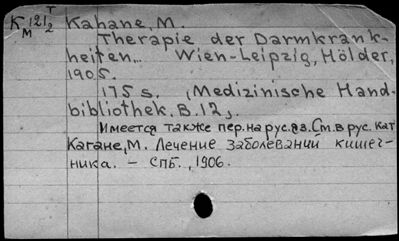 К М 121 Т/2 Kahane, M.
Therapie der Darmkrank-
heiten... Wien-Leipzig, Hölder,
1905.
175 s. (Medizinische Hand-
bibliothek. B.12).
Имеется также пер. на рус. яз. См. в рус. кат
Кагане, М. Лечение заболеваний кишеч-
ника. – СПБ., 1906.